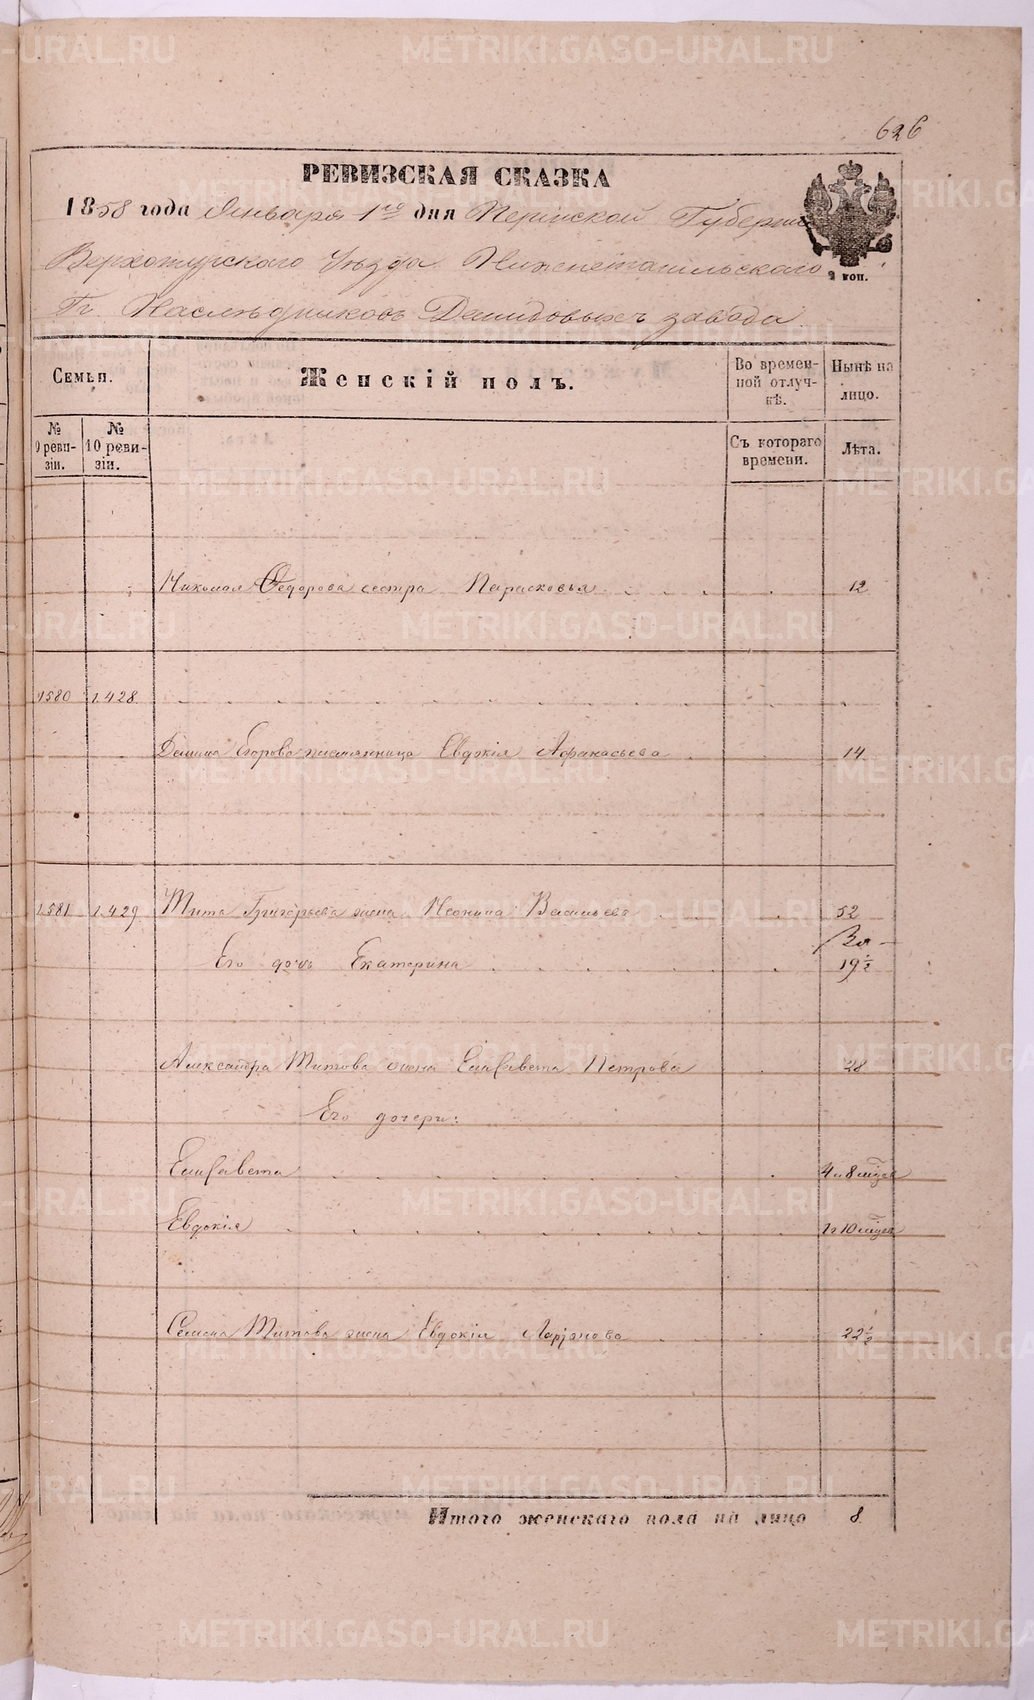 626
РЕВИЗСКАЯ СКАЗКА
1858 года Января 1го дня Пермской Губерніи
2 коп.
Верхотурскаго Уѣзда Нижнетагильскаго
Гг. Наслѣдниковъ Демидовыхъ завода
Семьи.
Женскій полъ.
Во времен-
ной отлуч-
кѣ.
Нынѣ на
лицо.
№
9 реви-
зіи.
№
10 реви-
зіи.
Съ котораго
времени.
Лѣта.
Федорова сестра Парасковья 12
1580 1.428
Егорова племянница Евдокія Афанасьева 14
1581 1.429 Тита Григорьева жена Васильева 52
Его дочь Екатерина 19½
Александра Титова жена Елисавета Петрова 28
Его дочери:
Елисавета
Евдокія
Семена Титова жена Евдокія Ларіонова 22½
Итого женскаго пола на лицо 8
METRIKI.GASO-URAL.RU